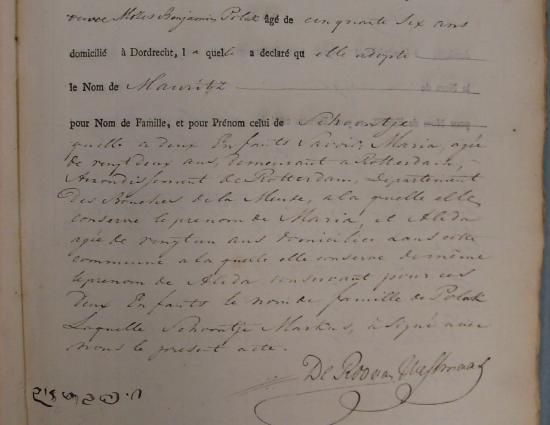 veuve Moses Benjamin Polak âgé de cinquante six ans
domicilié à Dordrecht, l a quelle a déclaré qu elle adopte
le Nom de Mauritz
pour Nom de Famille, et pour Prénom celui de Schoontje
qu'elle a deux Enfants Savoir, Maria, agée
de vingt deux ans, demeurant a Rotterdam,
Arrondissement de Rotterdam, Departement
Des Bouches de la Meuse, a la quelle elle
conserve le prenom de Maria, et Alida
agée de vingt un ans domiciliée dans cette
commune a la quelle elle conserve de même
le prenom de Alida conservant pour ces
Deux Enfants le nom de famille de Polak
Laquelle Schoontje Markus, à Signé avec
nous le present acte.
De Roo van